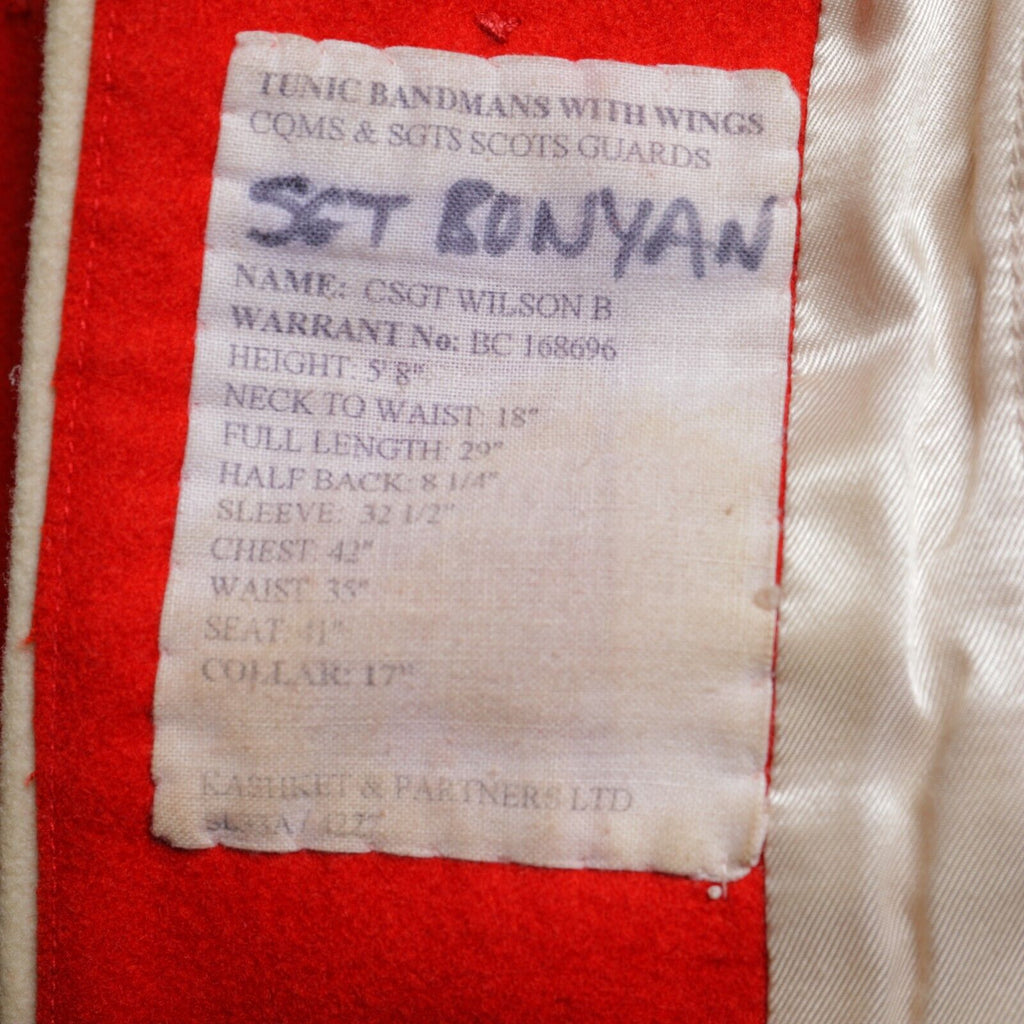 TUNIC BANDMANS WITH WINGS
CQMS & SGTS SCOTS GUARDS
SGT BONYAN
NAME: CSGT WILSON B
WARRANT No: BC 168696
HEIGHT: 5' 8"
NECK TO WAIST: 18"
FULL LENGTH: 29"
HALF BACK: 8 1/4"
SLEEVE: 32 1/2"
CHEST: 42"
WAIST: 35"
SEAT: 41"
COLLAR: 17"
KASHKET & PARTNERS LTD